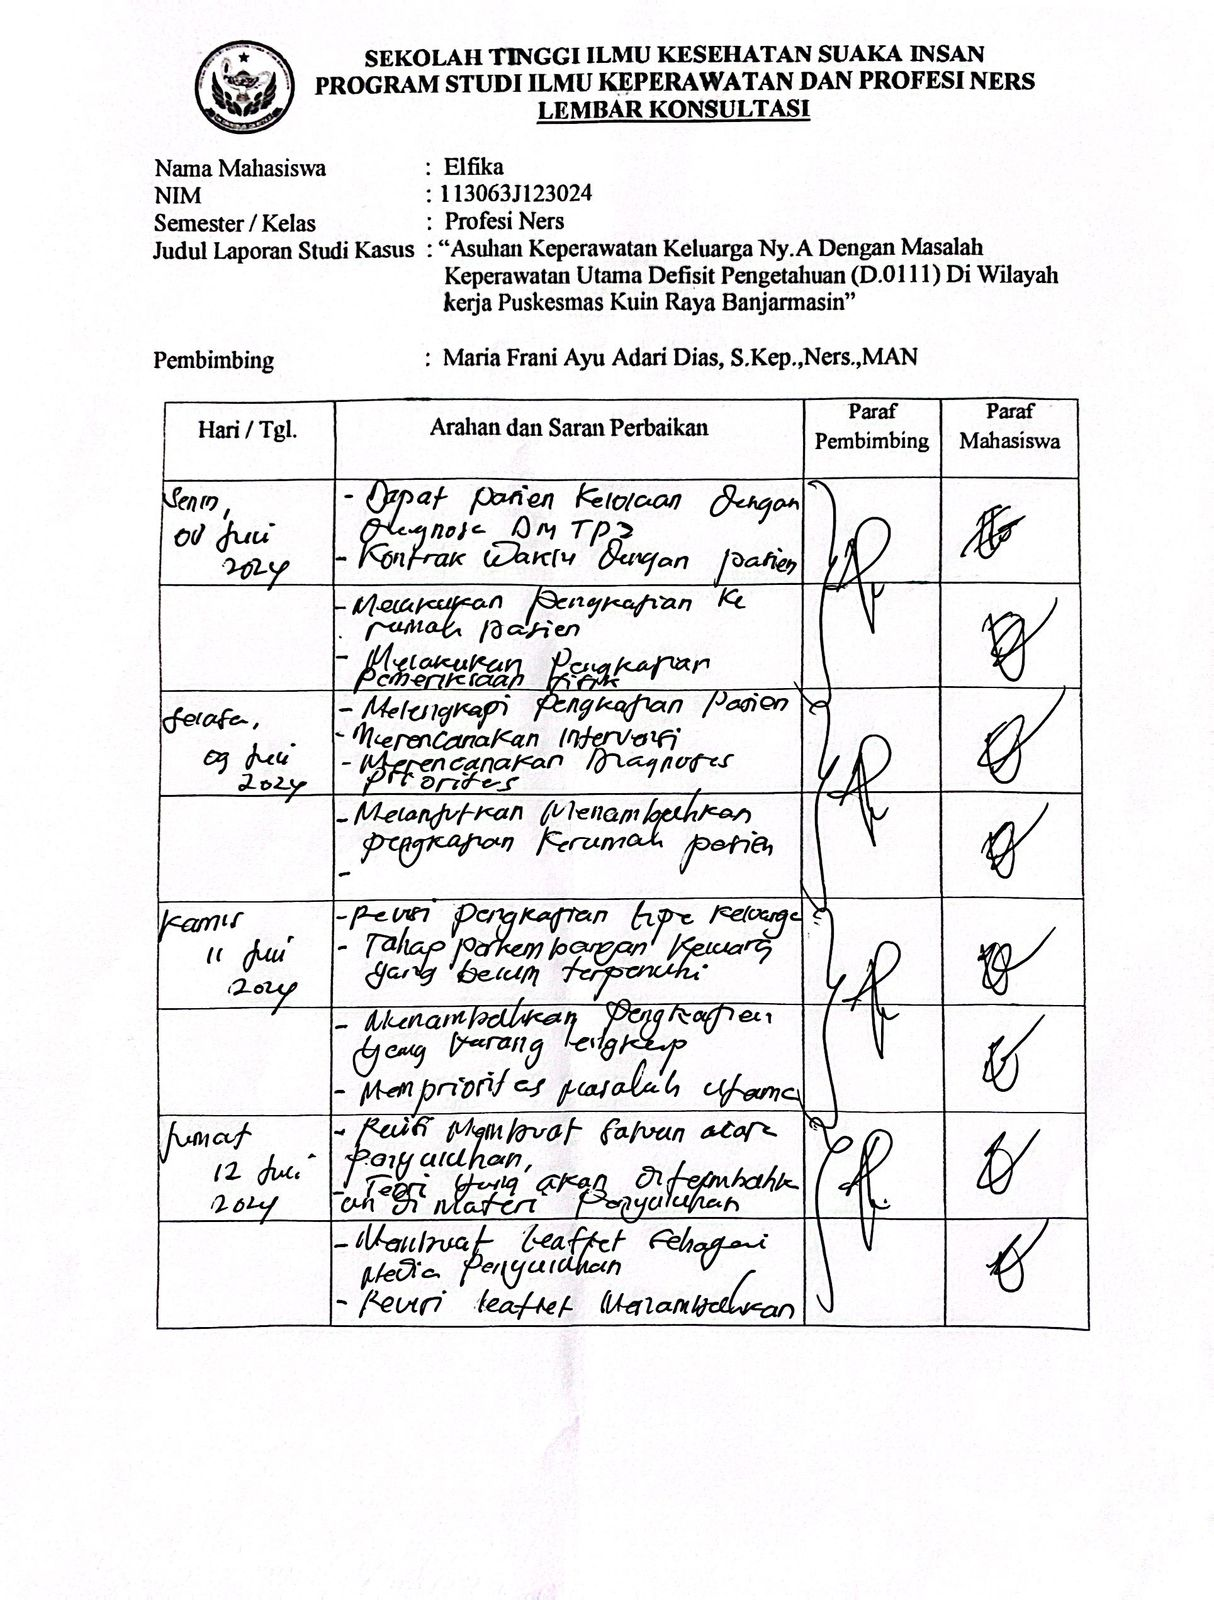 SEKOLAH TINGGI ILMU KESEHATAN SUAKA INSAN
PROGRAM STUDI ILMU KEPERAWATAN DAN PROFESI NERS
LEMBAR KONSULTASI
Nama Mahasiswa : Elfika
NIM : 113063J123024
Semester / Kelas : Profesi Ners
Judul Laporan Studi Kasus : “Asuhan Keperawatan Keluarga Ny.A Dengan Masalah
Keperawatan Utama Defisit Pengetahuan (D.0111) Di Wilayah
kerja Puskesmas Kuin Raya Banjarmasin”
Pembimbing : Maria Frani Ayu Adari Dias, S.Kep.,Ners.,MAN
Hari / Tgl. Arahan dan Saran Perbaikan Paraf Pembimbing Paraf Mahasiswa
Senin, - Dapat pasien Kelolaan dengan
08 Juli Diagnosa DM
2024 - Kontrak Waktu dengan pasien
- Melakukan pengkajian ke
rumah pasien
- Melakukan Pengkajian
Pemeriksaan Fisik
Selasa, - Melengkapi Pengkajian Pasien
- Merencanakan Intervensi
09 Juli - Merencanakan Diagnosis
2024 Prioritas
- Melanjutkan Menambahkan
pengkajian Kerumah pasien
-
Kamis - Revisi pengkajian tipe keluarga
11 Juli - Tahap perkembangan Keluarga
2024 yang belum terpenuhi
- Menambahkan Pengkajian
yang kurang lengkap
- Memprioritas masalah utama
Jumat - Revisi Membuat Satuan acara
12 Juli penyuluhan,
- Teori yang akan ditambahk
2024 an di Materi Penyuluhan
- Membuat Leaflet Sebagai
Media Penyuluhan
- Revisi leaflet Menambahkan